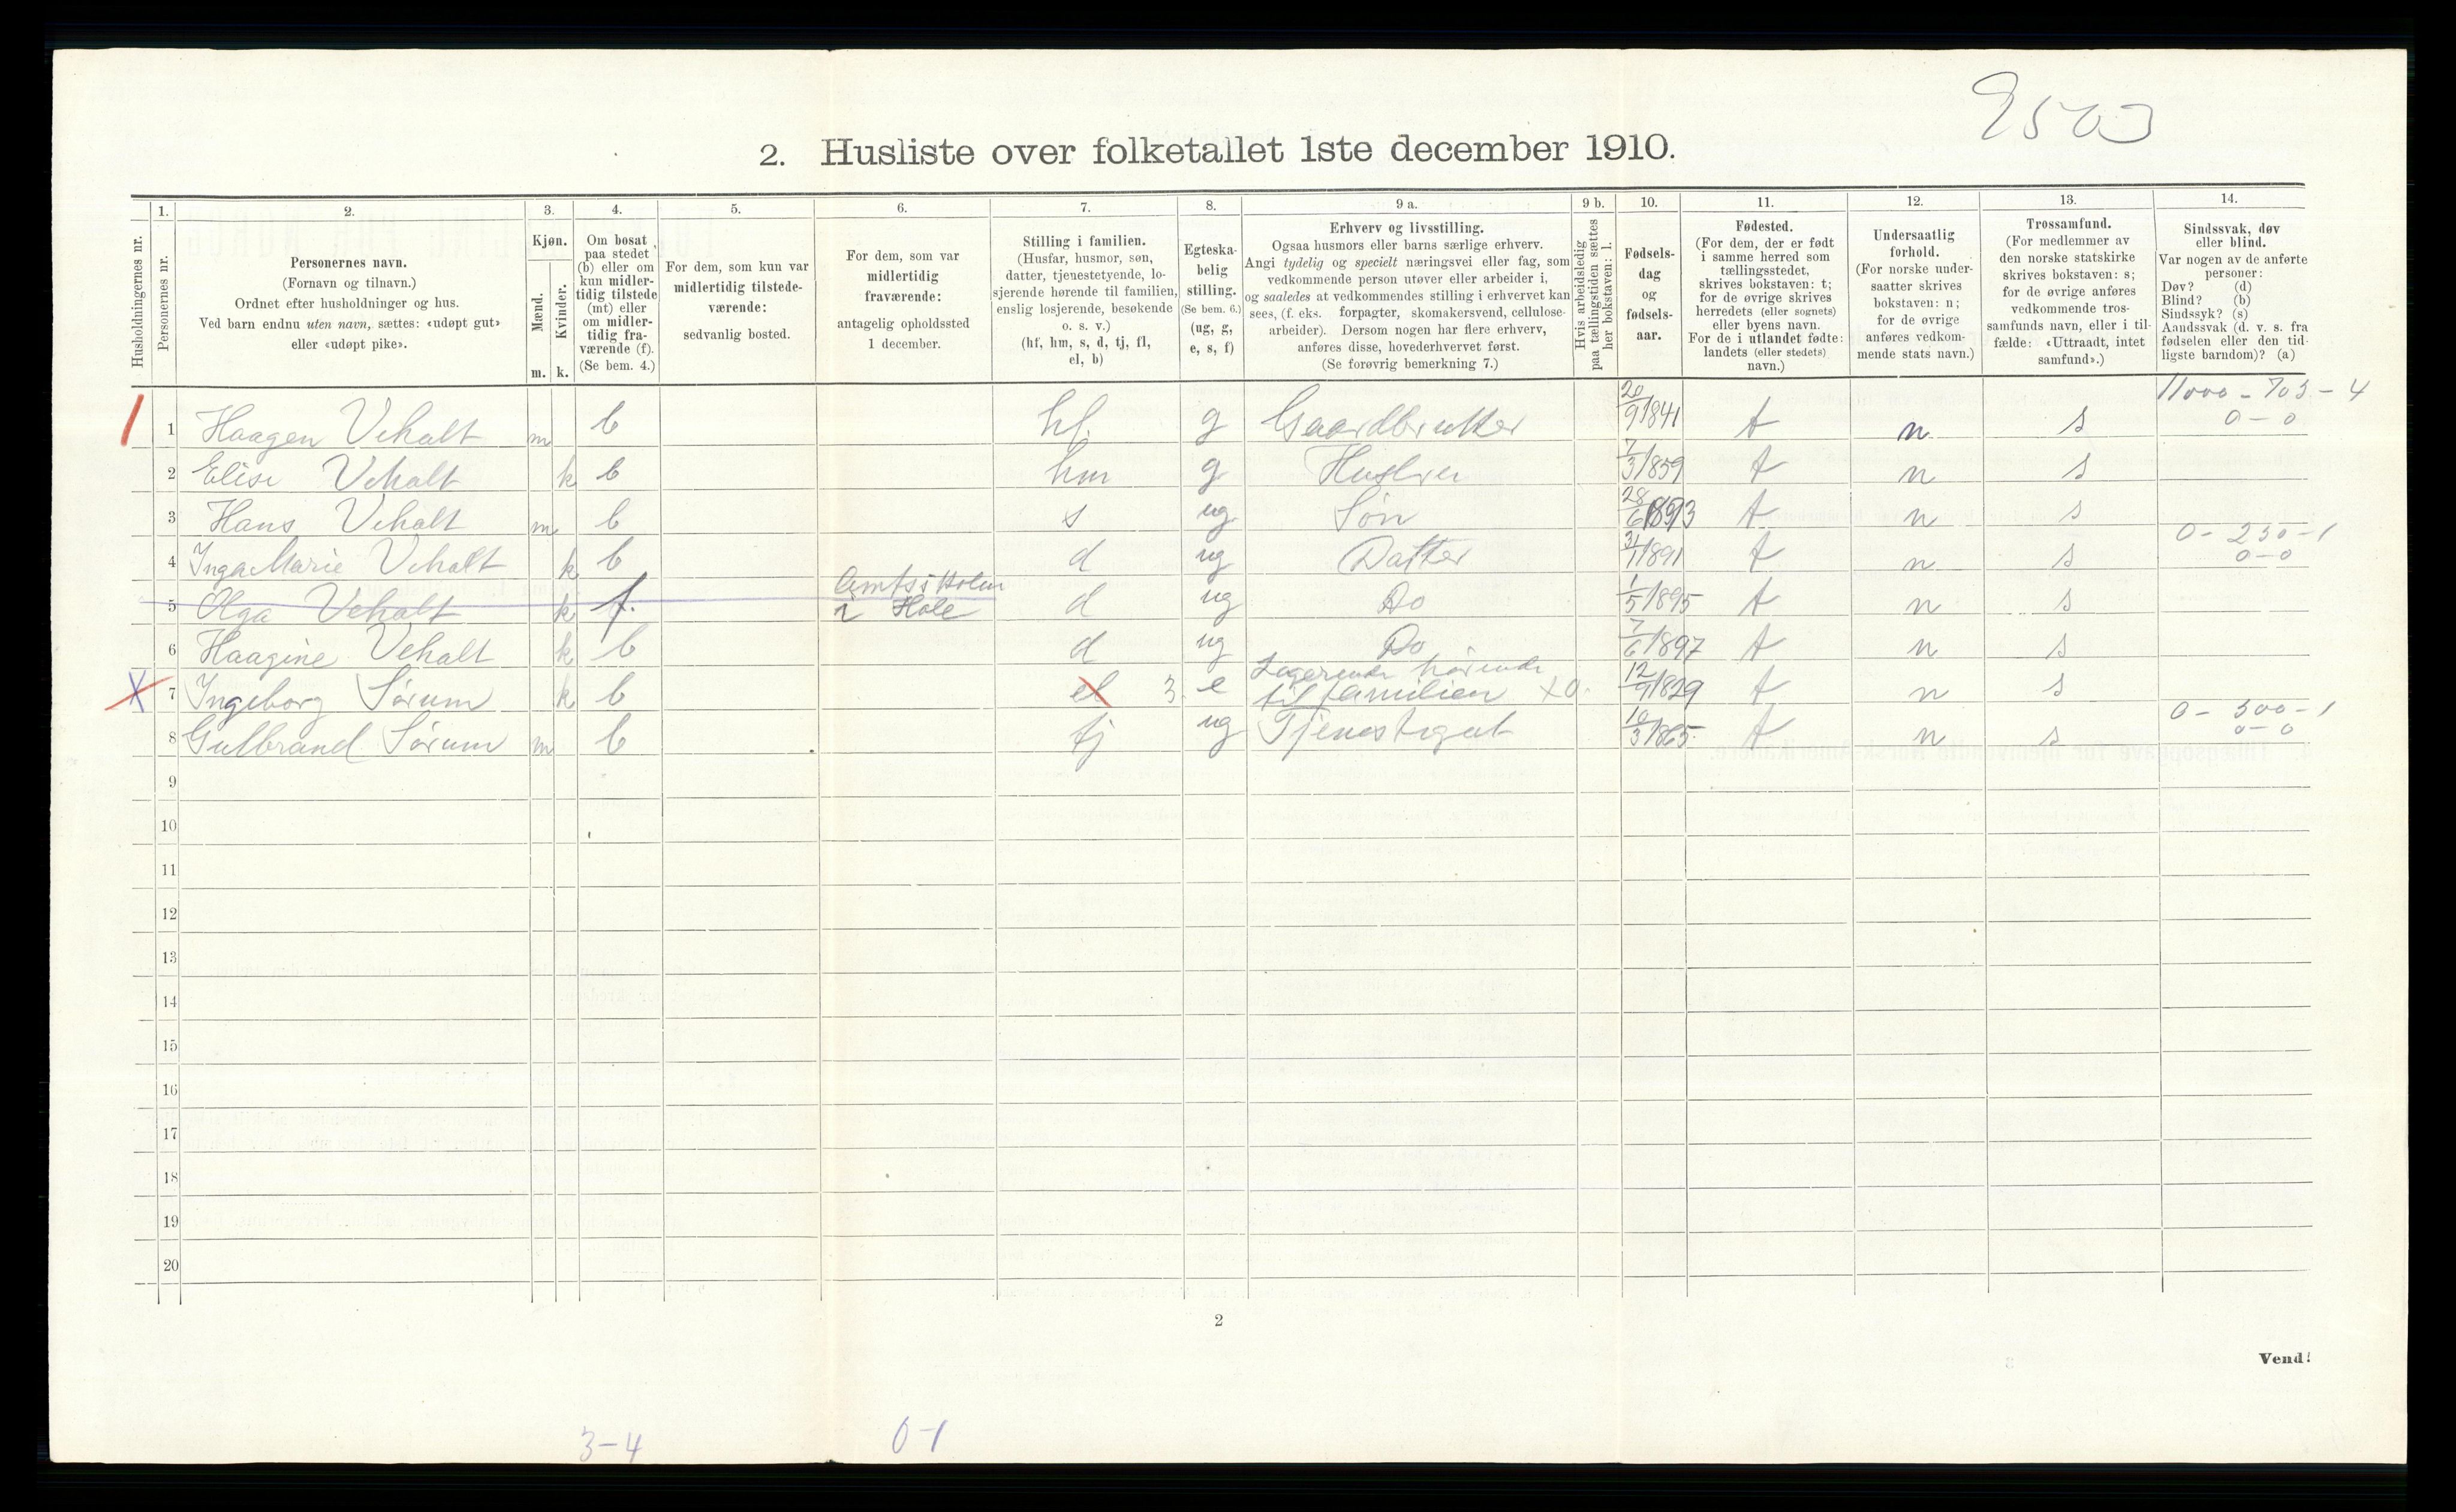 9503
2. Husliste over folketallet 1ste december 1910.
1. 2. 3. 4. 5. 6. 7. 8. 9 a. 9 b. 10. 11. 12. 13. 14.
Husholdningernes nr.
Personernes nr.
Personernes navn.
(Fornavn og tilnavn.)
Ordnet efter husholdninger og hus.
Ved barn endnu uten navn, sættes: «udøpt gut»
eller «udøpt pike».
Kjøn.
Mænd.
Kvinder.
m. k.
Om bosat
paa stedet
(b) eller om
kun midler-
tidig tilstede
(mt) eller
om midler-
tidig fra-
værende (f).
(Se bem. 4.)
For dem, som kun var
midlertidig tilstede-
værende:
sedvanlig bosted.
For dem, som var
midlertidig
fraværende:
antagelig opholdssted
1 december.
Stilling i familien.
(Husfar, husmor, søn,
datter, tjenestetyende, lo-
sjerende hørende til familien,
enslig losjerende, besøkende
o. s. v.)
(hf, hm, s, d, tj, fl,
el, b)
Egteska-
belig
stilling.
(Se bem. 6.)
(ug, g,
e, s, f)
Erhverv og livsstilling.
Ogsaa husmors eller barns særlige erhverv.
Angi tydelig og specielt næringsvei eller fag, som
vedkommende person utøver eller arbeider i,
og saaledes at vedkommendes stilling i erhvervet kan
sees, (f. eks. forpagter, skomakersvend, cellulose-
arbeider). Dersom nogen har flere erhverv,
anføres disse, hovederhvervet først.
(Se forøvrig bemerkning 7.)
Hvis arbeidsledig
paa tællingstiden sættes
her bokstaven: l.
Fødsels-
dag
og
fødsels-
aar.
Fødested.
(For dem, der er født
i samme herred som
tællingsstedet,
skrives bokstaven: t;
for de øvrige skrives
herredets (eller sognets)
eller byens navn.
For de i utlandet fødte:
landets (eller stedets)
navn.)
Undersaatlig
forhold.
(For norske under-
saatter skrives
bokstaven: n;
for de øvrige
anføres vedkom-
mende stats navn.)
Trossamfund.
(For medlemmer av
den norske statskirke
skrives bokstaven: s;
for de øvrige anføres
vedkommende tros-
samfunds navn, eller i til-
fælde: «Uttraadt, intet
samfund».)
Sindssvak, døv
eller blind.
Var nogen av de anførte
personer:
Døv? (d)
Blind? (b)
Sindssyk? (s)
Aandssvak (d. v. s. fra
fødselen eller den tid-
ligste barndom)? (a)
11000 - 703 - 4
1 Haagen Vehalt m b hf. g Gaardbruker 20/9 1841 t n s 0 - 0
2 Elise Vehalt k b hm g Hustru 7/3 1859 t n s
3 Hans Vehalt m b s ug Søn 28/6 1893 t n s
0 - 230 - 1
4 Inga Marie Vehalt k b d ug Datter 31/1 1891 t n s 0 - 0
5 Olga Vehalt k f. i Hole d ug Do 1/5 1895 t n s
6 Haagine Vehalt k b d ug Do 7/6 1897 t n s
Logerende hørende
X 7 Ingeborg Sørum k b el 3. e til familien X0. 12/9 1829 t n s
0 - 300 - 1
8 Gulbrand Sørum m b tj ug Tjenestegut 10/3 1865 t n s 0 - 0
9
10
11
12
13
14
15
16
17
18
19
20
2
Vend!
3-4 0-1